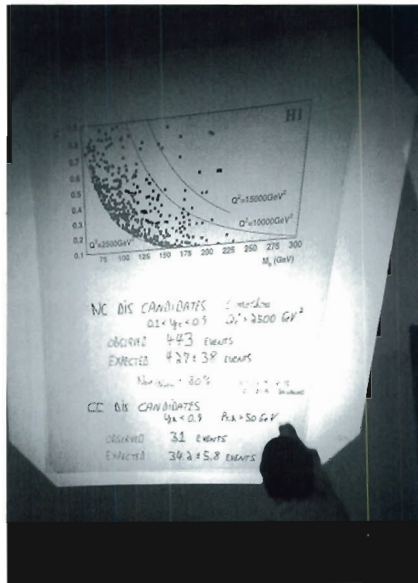 H1
0.9
0.8
0.7
0.6
0.5
0.4
0.3
0.2
0.1
Q²=15000GeV²
Q²=10000GeV²
Q²=2500GeV²
75 100 125 150 175 200 225 250 275 300
(GeV)
NC DIS CANDIDATES
0.1 < ye < 0.9 > 2500 GeV²
OBSERVED 443 EVENTS
EXPECTED 427 ± 38 EVENTS
80%
CC DIS CANDIDATES
< 0.9 > 50 GeV
OBSERVED 31 EVENTS
EXPECTED 34.2 ± 5.8 EVENTS